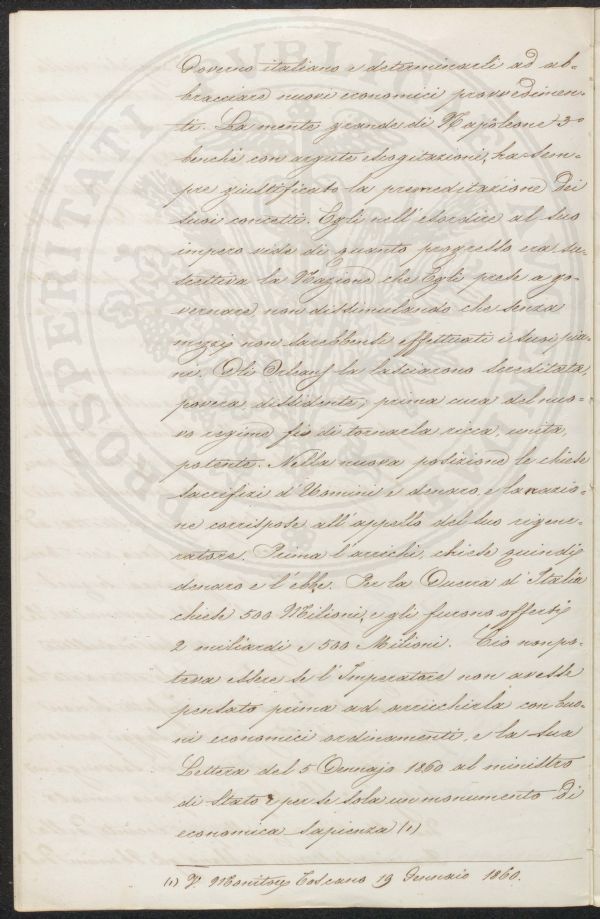 Governo italiano e determinarli ad ab-
bracciare nuovi economici provvedimen-
ti. La mente grande di Napoleone 3º
benchè con argute escogitazioni, ha sem-
pre giustificato la premeditazione dei
suoi concetti. Egli nell'esordire al suo
impero vide di quanto progresso era su-
scettiva la Nazione che Egli prese a go-
vernare non dissimulando che senza
mezzi non sarebbensi effettuati i suoi pia-
ni. Gli Orleans la lasciarono screditata,
povera dissidente; prima cura del nuo-
vo regime fu di tornarla ricca, unita,
potente. Nella nuova posizione le chiese
sacrifizi d'Uomini e denaro, e la nazio-
ne corrispose all'appello del suo rigene-
ratore. Prima l'arricchì, chiese quindi
denaro e l'ebbe. Per la Guerra d'Italia
chiese 500 Milioni, e gli furono offerti
2 miliardi e 500 Milioni. Ciò non po-
teva essere se l'Imperatore non avesse
pensato prima ad arricchirla con buo-
ni economici ordinamenti, e la sua
Lettera del 5 Gennajo 1860 al ministro
di Stato è per se sola un monumento di
economica sapienza (1)
(1) V. Monitore Toscano 19 Gennaio 1860.
PROSPERITATI PUBLICAE AUGENDAE